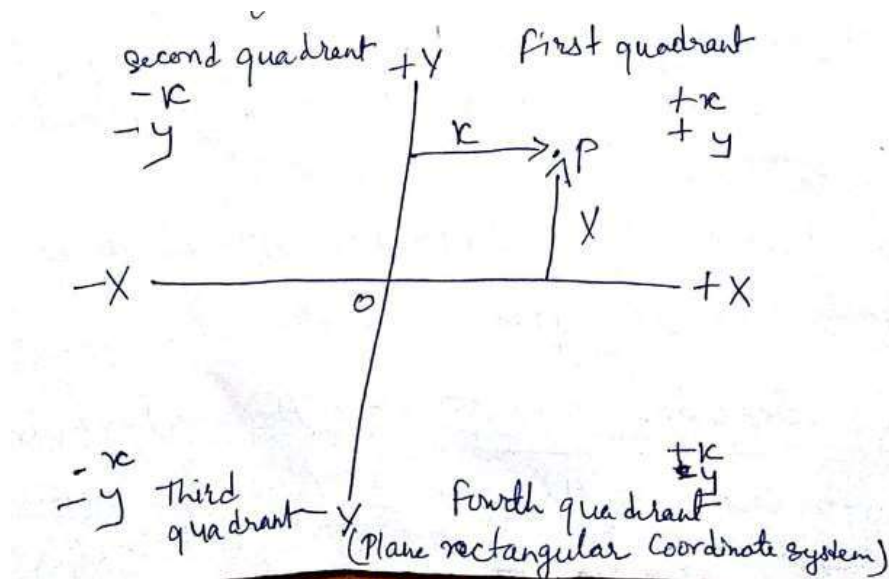 second quadrant
+Y
first quadrant
-x
-y
+x
+y
x
P
Y
-X
O
+X
-x
-y
Third
quadrant
-Y
+x
-y
Fourth quadrant
(Plane rectangular Coordinate system)